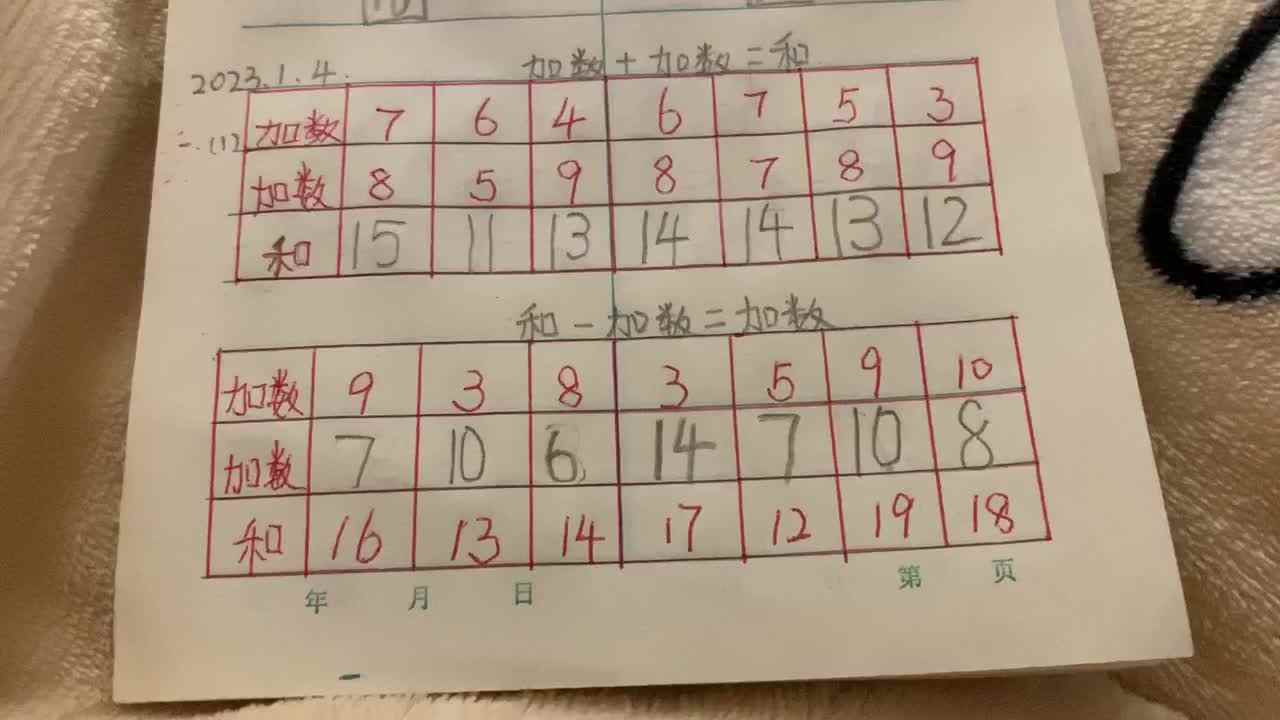 2023.1.4.
加数+加数=和
二.(1)
加数 7 6 4 6 7 5 3
加数 8 5 9 8 7 8 9
和 15 11 13 14 14 13 12
和-加数=加数
加数 9 3 8 3 5 9 10
加数 7 10 6 14 7 10 8
和 16 13 14 17 12 19 18
年 月 日 第 页